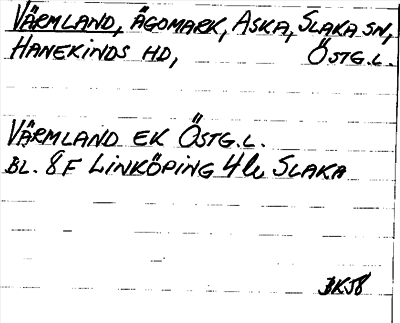 VÄRMLAND, ÄGOMARK, ASKA, SLAKA SN,
HANEKINDS HD, ÖSTG.L.
VÄRMLAND EK ÖSTG.L.
BL. 8F LINKÖPING 4 SLAKA
BK58